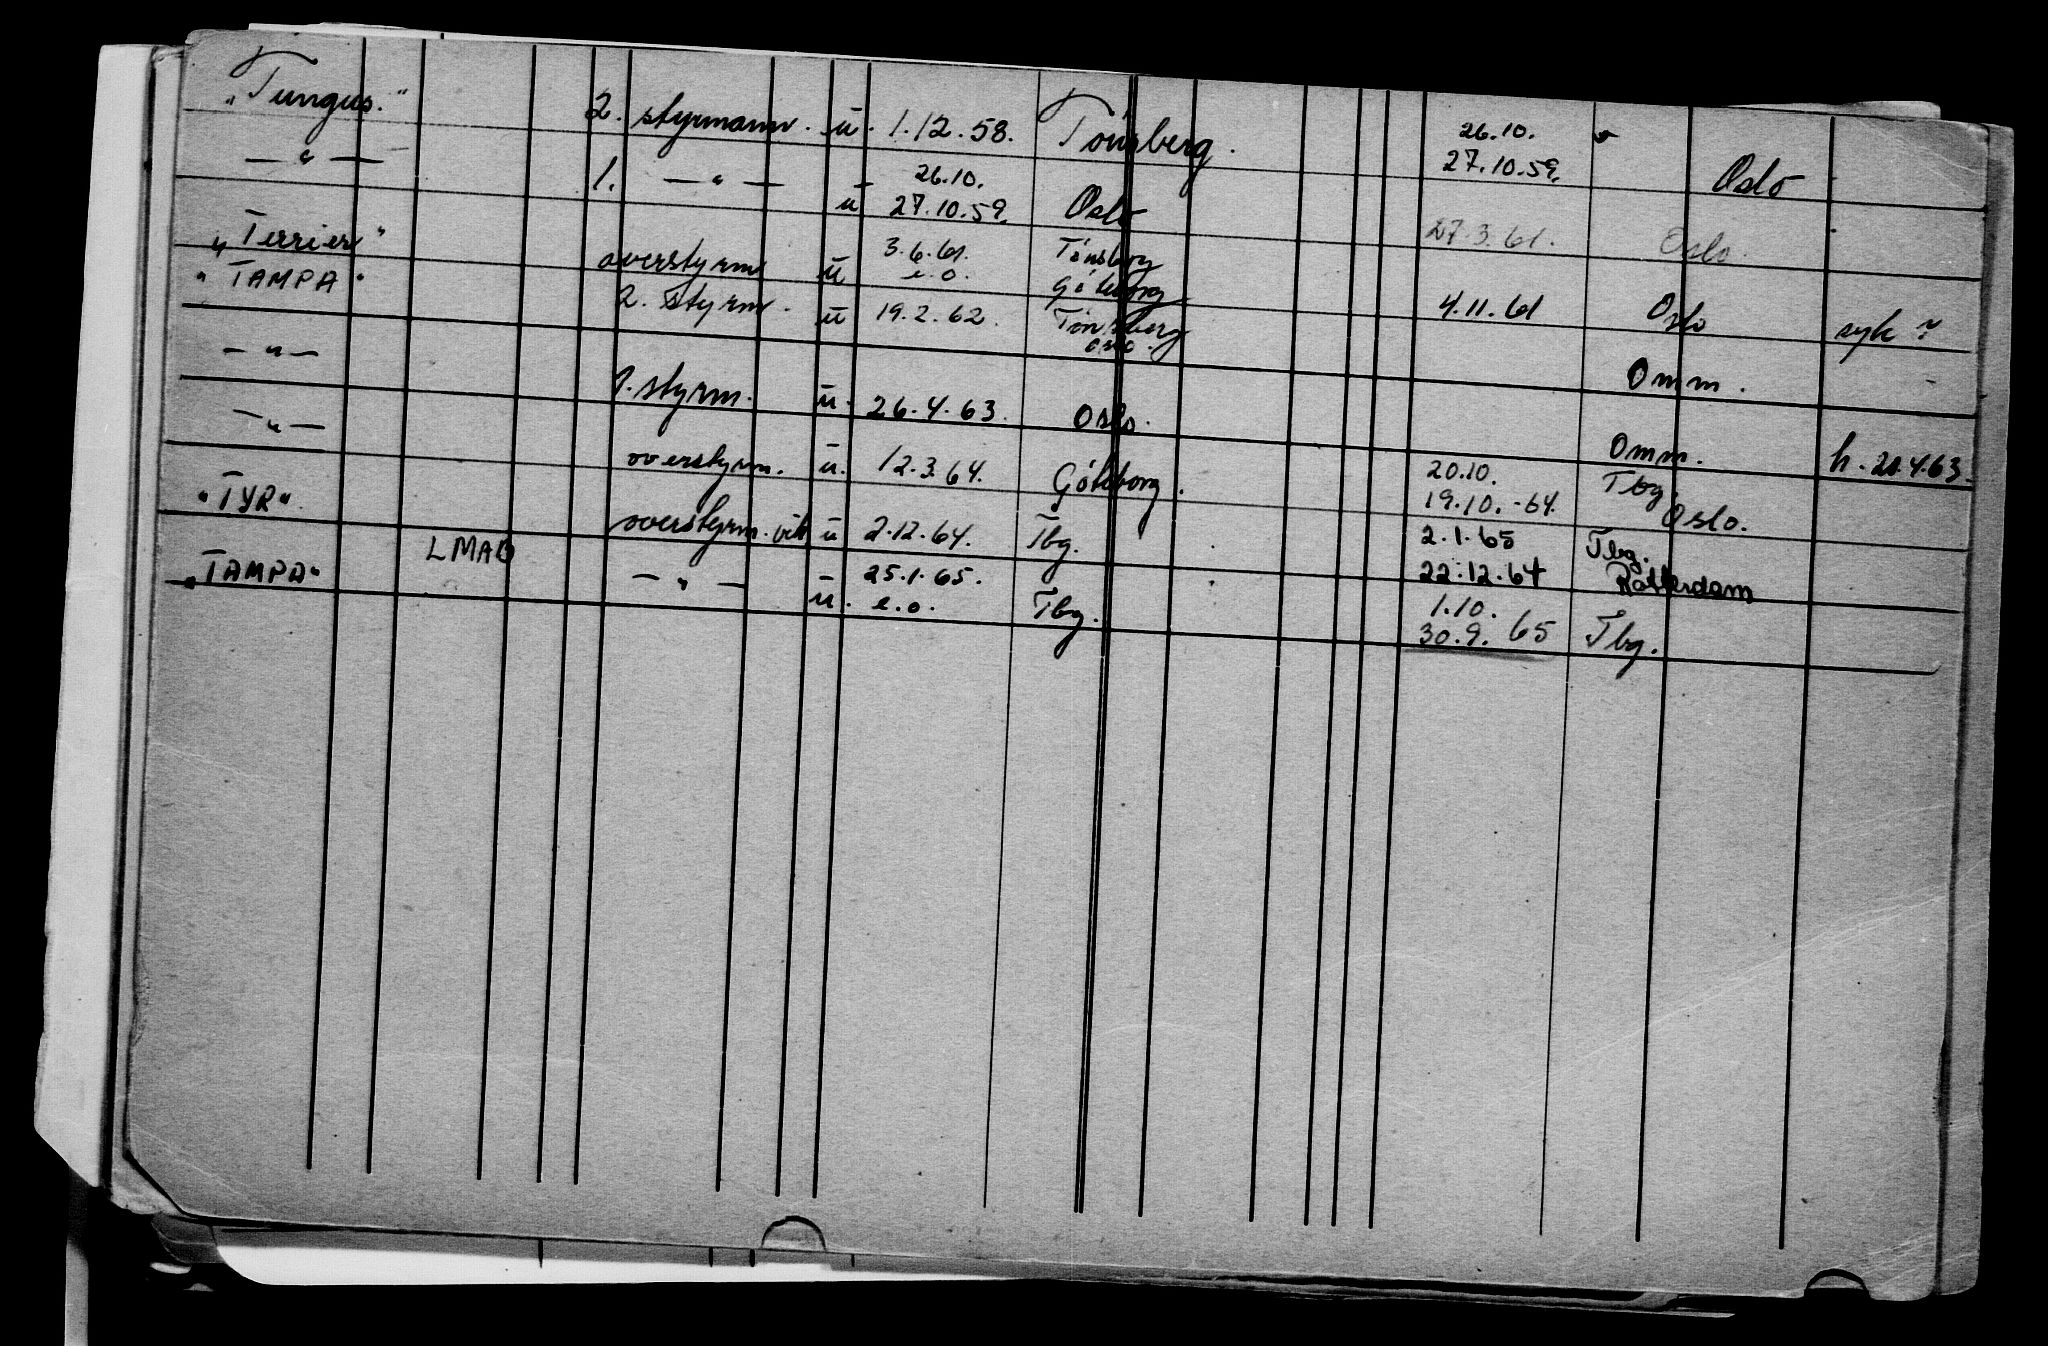 "Tungus." 2. styrmann. u. 1.12.58. Tönsberg. 26.10. 27.10.59. Oslo
— " — 1. — " — u 26.10. 27.10.59. Oslo 27.3.61. Oslo.
"Terrier" overstyrm u 3.6.61. e.o. Tönsberg Göteborg 4.11.61 Oslo syk ?
"TAMPA" 2. styrm. u 19.2.62. Tönsberg Oslo. Omm.
— " — styrm. u. 26.4.63. Oslo. Omm. h. 20.4.63.
— " — overstyrm. u. 12.3.64. Göteborg. 20.10. 19.10.-64. Tbg. Oslo.
"TYR" overstyrm. vik u 2.12.64. Tbg. 2.1.65 22.12.64 Tbg. Rotterdam
"TAMPA" LMAO — " — u. 25.1.65. e.o. Tbg. 1.10. 30.9.65 Tbg.